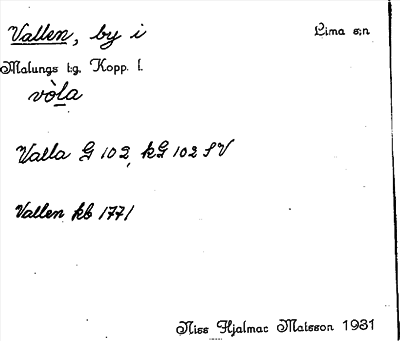 Vallen, by i Lima s:n
Malungs t:g, Kopp. l.
vòla
Valla G 102, kG 102 SV
Vallen kb 1771
Niss Hjalmar Matsson 1931